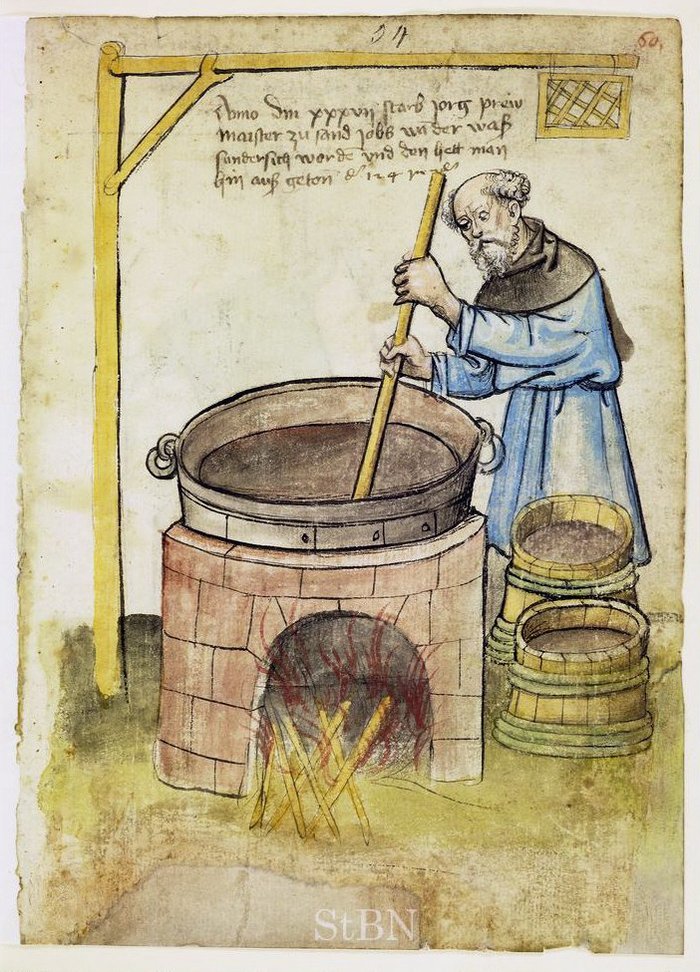 54
60.
Anno dm xxxvii starb Jorg prew
maister zu sand Jobs wa der waß
sundersich worde vnd den hett man
hin auß geton
StBN